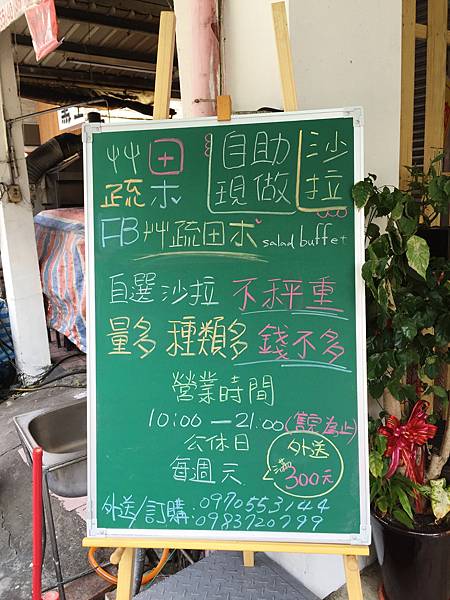 艸田
疏木
自助
現做
沙
拉
FB艸疏田木 salad buffet
自選沙拉 不秤重
量多 種類多 錢不多
營業時間
10:00—21:00(售完為止)
公休日
每週天
外送
滿300元
外送/訂購:0970553144
0983720799